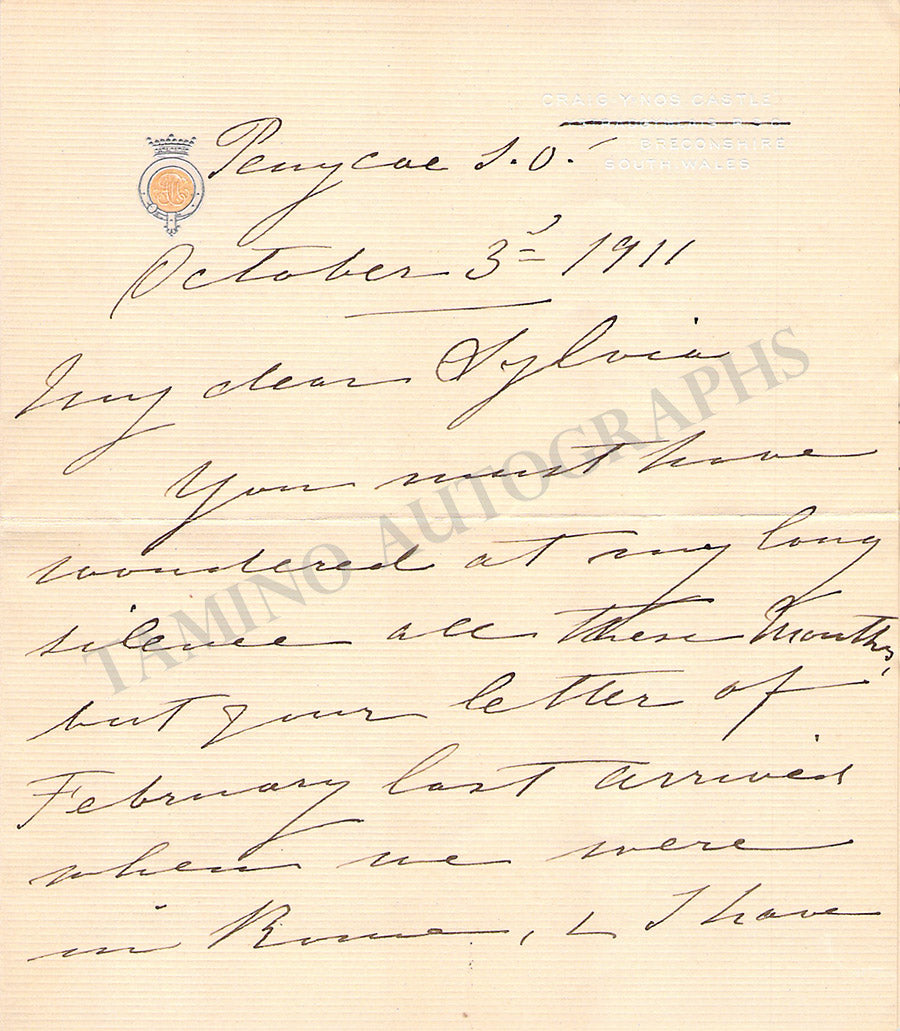 CRAIG-Y-NOS CASTLE
BRECONSHIRE
SOUTH WALES
Penycae S.O.
October 3d 1911
My dear Sylvia
You must have
wondered at my long
silence all these Months,
but your letter of
February last arrived
when we were
in Rome, & I have
TAMINO AUTOGRAPHS